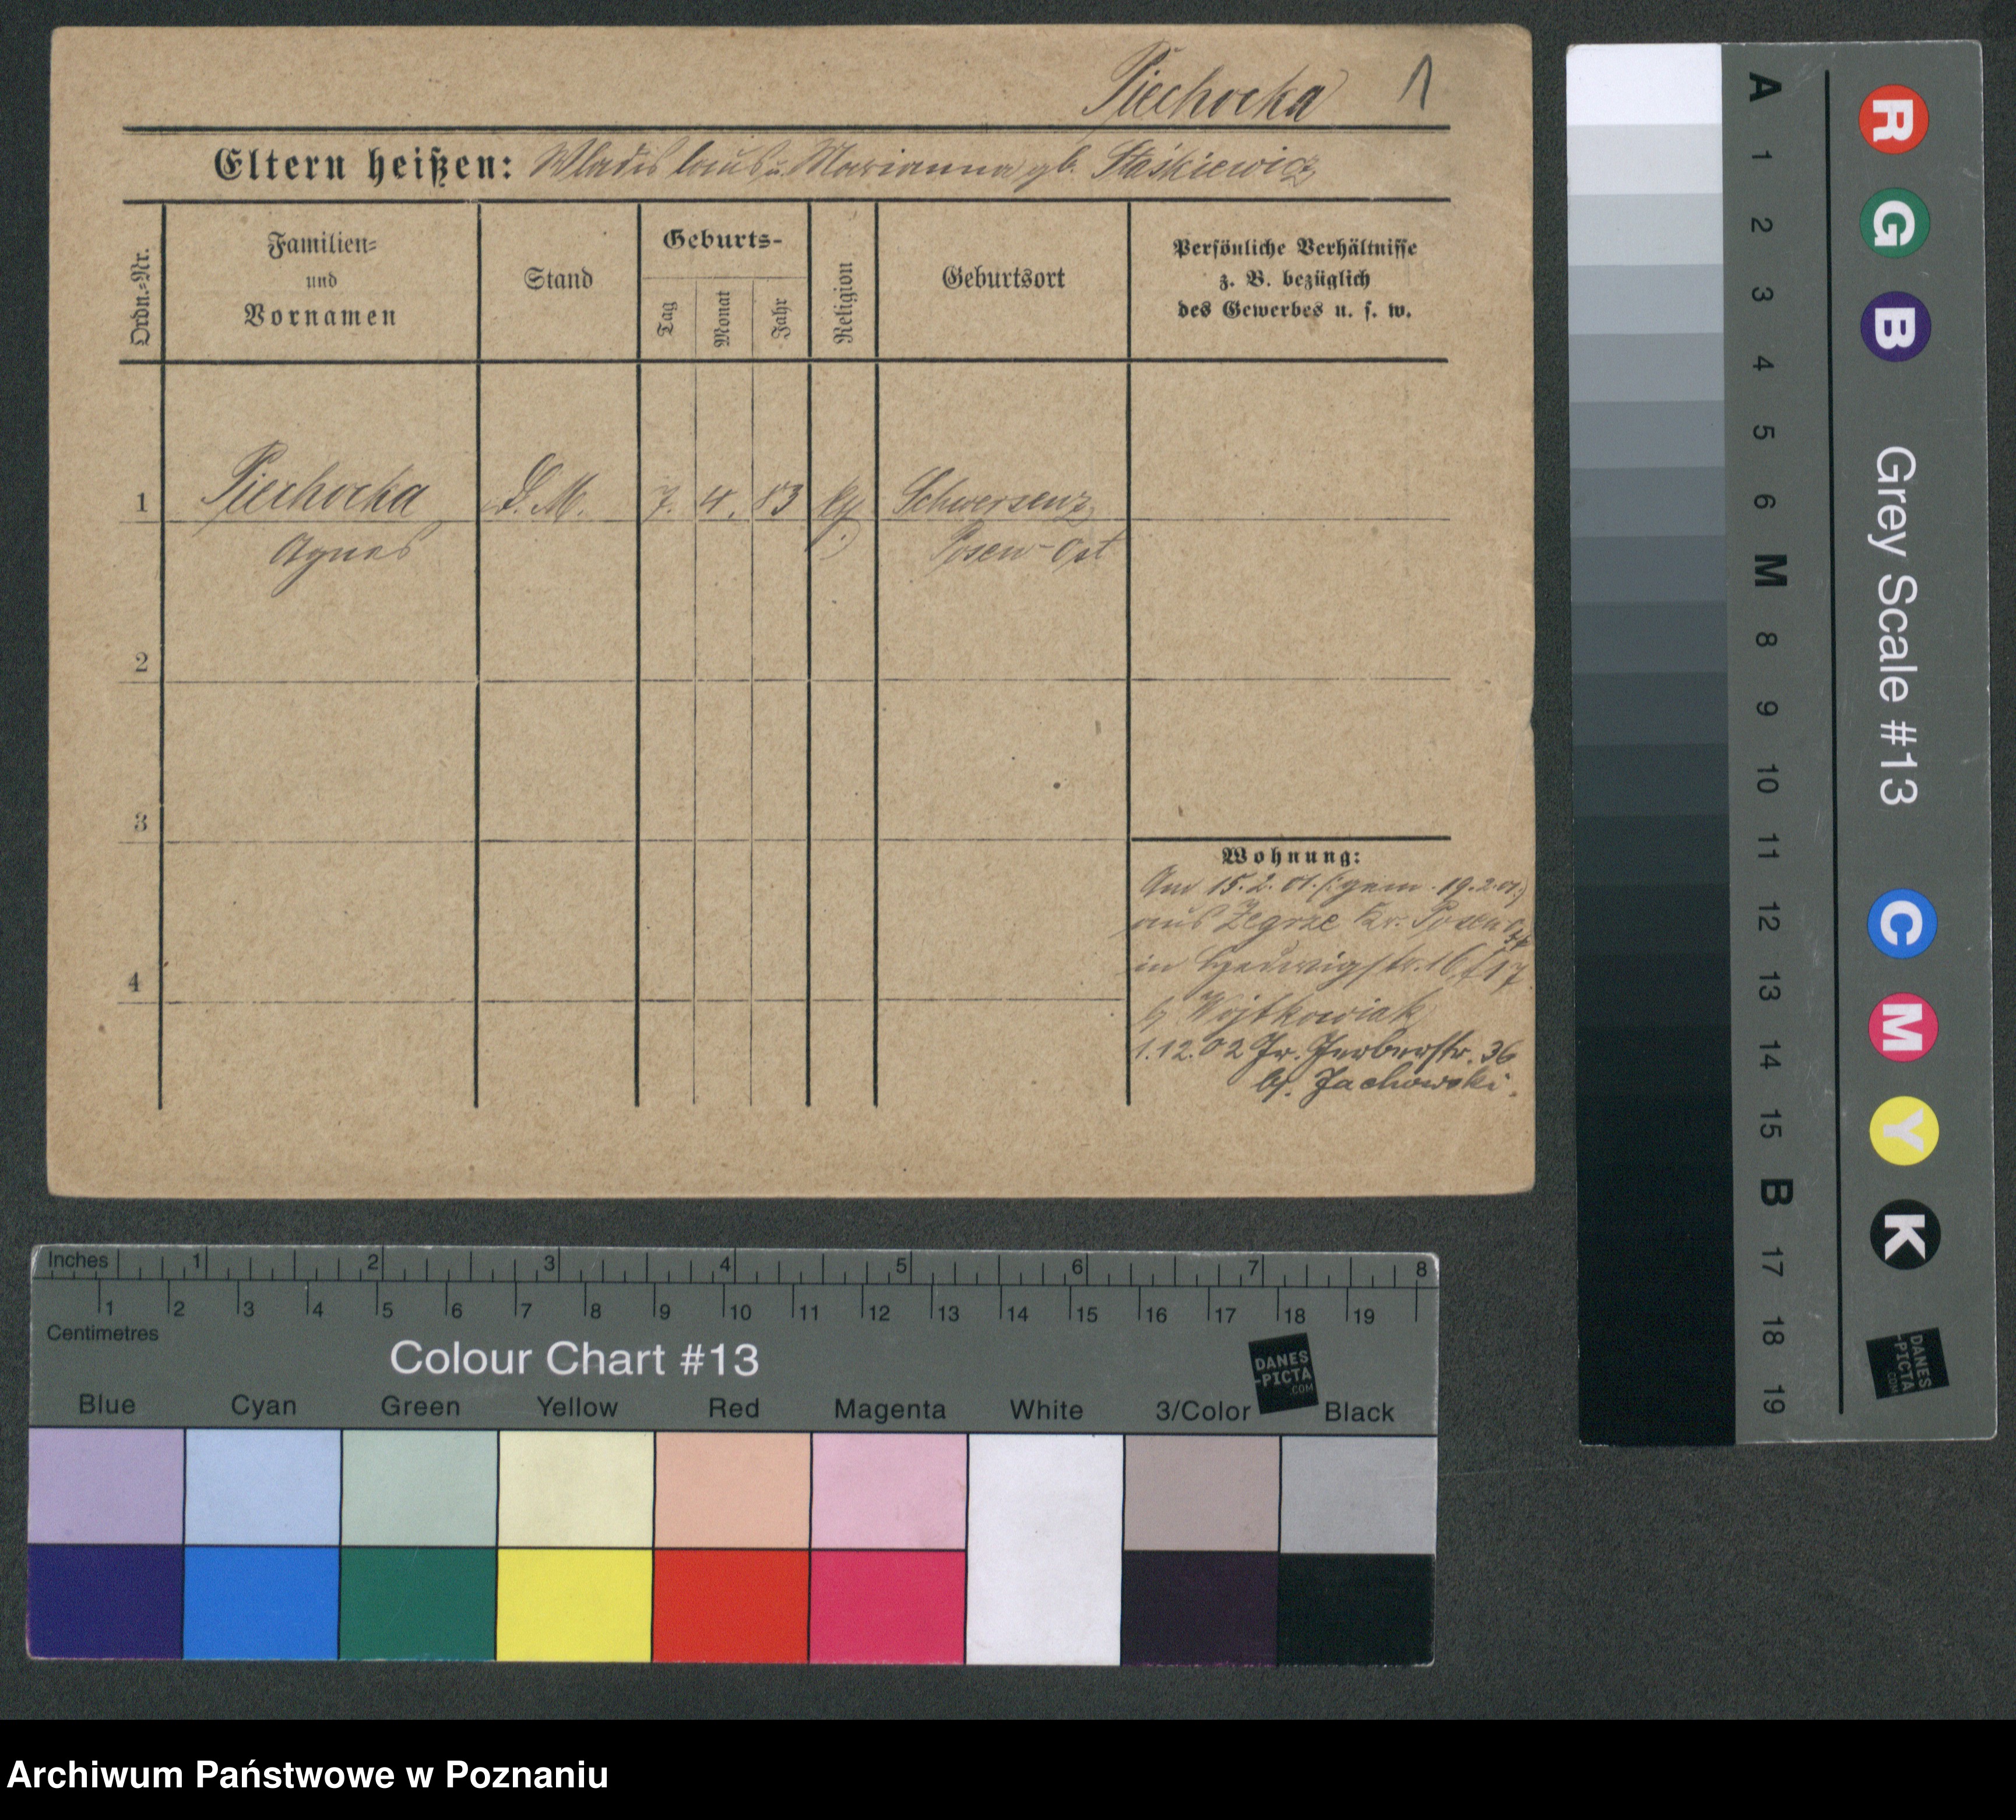 Piechocka 1
Eltern heißen: Wladislaus u. Marianna gb. Staśkiewicz
Ordn.-Nr.
Familien-
und
Vornamen
Stand
Geburts-
Tag
Monat
Jahr
Religion
Geburtsort
Persönliche Verhältnisse
z. B. bezüglich
des Gewerbes u. s. w.
1 Piechocka D. M. 7. 4. 83 Schwersenz
Agnes Posen-Ost
2
3
4
Wohnung:
Am 15.2.01. (: gem. 19.2.01:)
aus Żegrze Kr. Posen
in Hedwigstr. 16/17
b/ Wojtkowiak
1.12.02 Gr. Gerberstr. 36
b/. Jachowski.
Inches 1 2 3 4 5 6 7 8
1 2 3 4 5 6 7 8 9 10 11 12 13 14 15 16 17 18 19
Centimetres
Colour Chart #13
DANES
-PICTA
.COM
Blue Cyan Green Yellow Red Magenta White 3/Color Black
A 1 2 3 4 5 6 M 8 9 10 11 12 13 14 15 B 17 18 19
R G B Grey Scale #13 C M Y K
DANES
-PICTA
.COM
Archiwum Państwowe w Poznaniu